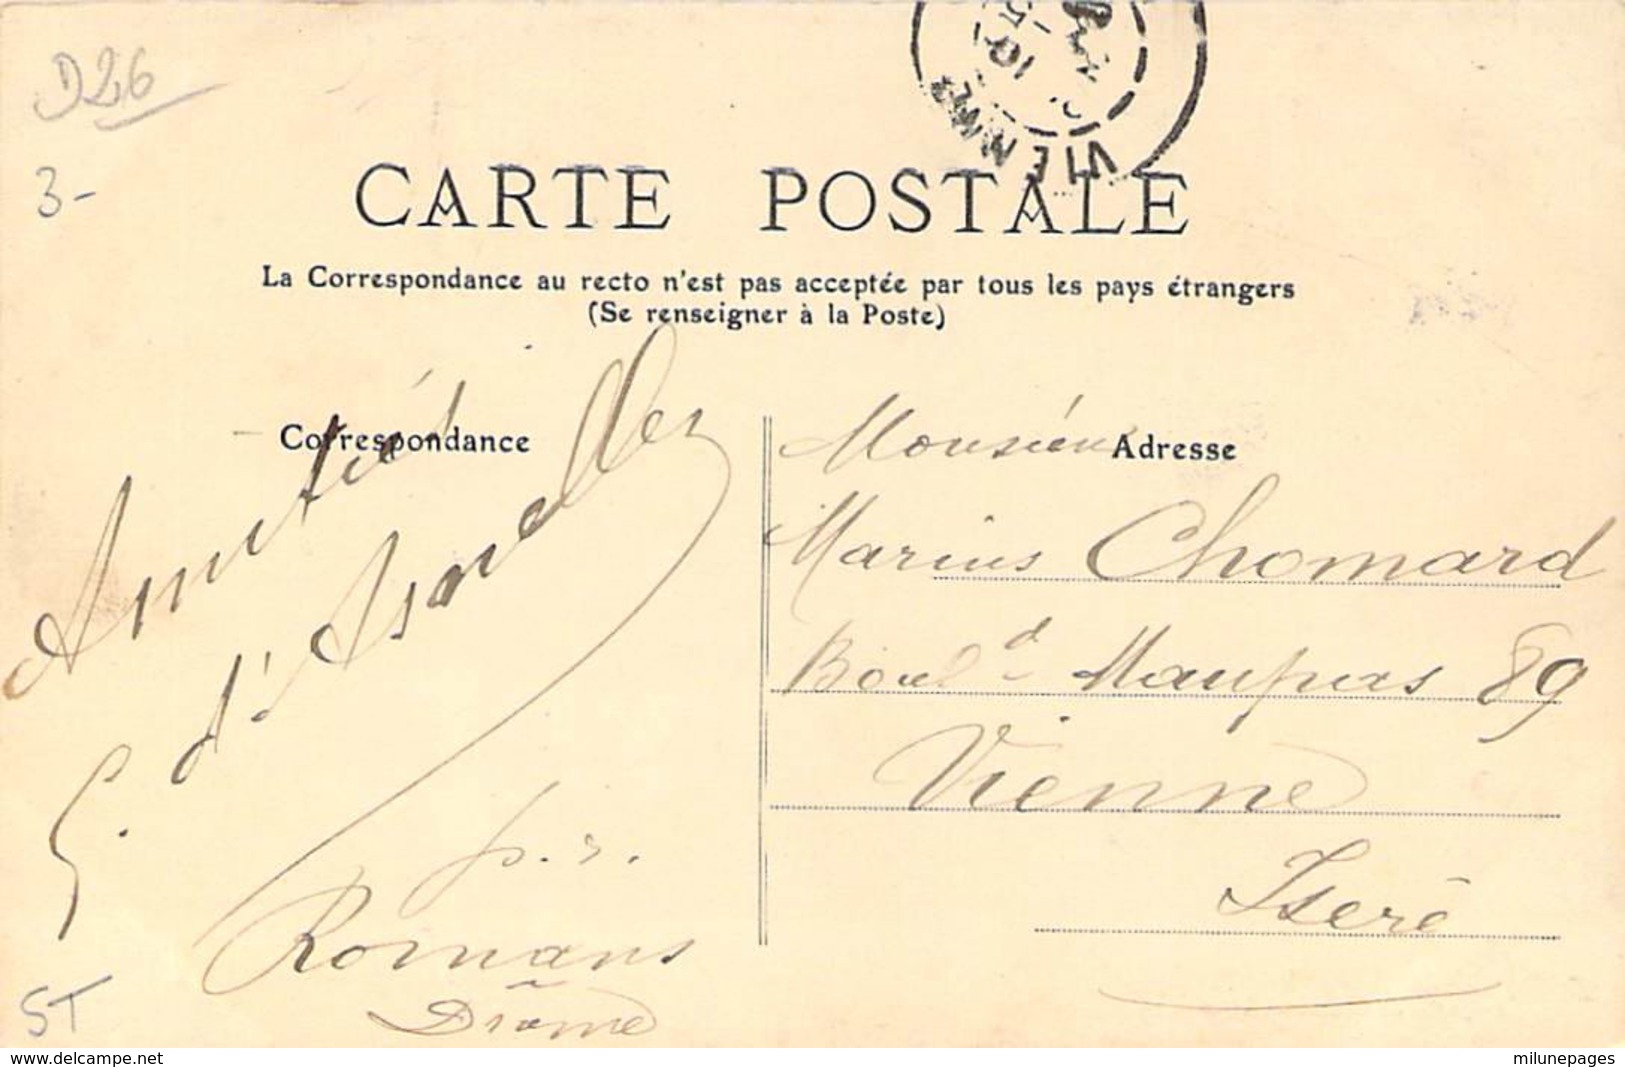 D26
3-
VIENNE
10
CARTE POSTALE
La Correspondance au recto n'est pas acceptée par tous les pays étrangers
(Se renseigner à la Poste)
Correspondance
Amitiés
G. d'
p. r.
Romans
Drôme
ST
Adresse
Monsieur
Marius Chomard
Boul d Maupas 89
Vienne
Isère
www.delcampe.net
milunepages